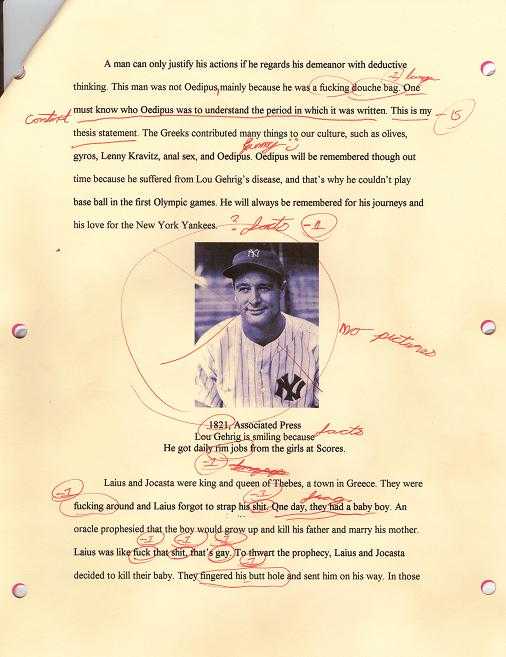 A man can only justify his actions if he regards his demeanor with deductive
-2 lang
thinking. This man was not Oedipus, mainly because he was a fucking douche bag. One
must know who Oedipus was to understand the period in which it was written. This is my
Content
-15
thesis statement. The Greeks contributed many things to our culture, such as olives,
funny
gyros, Lenny Kravitz, anal sex, and Oedipus. Oedipus will be remembered though out
time because he suffered from Lou Gehrig's disease, and that's why he couldn't play
base ball in the first Olympic games. He will always be remembered for his journeys and
his love for the New York Yankees. ? facts -1
NY
No pictures
NY
1821, Associated Press
Lou Gehrig is smiling because facts
He got daily rim jobs from the girls at Scores.
-1
Laius and Jocasta were king and queen of Thebes, a town in Greece. They were
-1 -1 frag
fucking around and Laius forgot to strap his shit. One day, they had a baby boy. An
oracle prophesied that the boy would grow up and kill his father and marry his mother.
-1 -1
Laius was like fuck that shit, that's gay. To thwart the prophecy, Laius and Jocasta
-1
decided to kill their baby. They fingered his butt hole and sent him on his way. In those